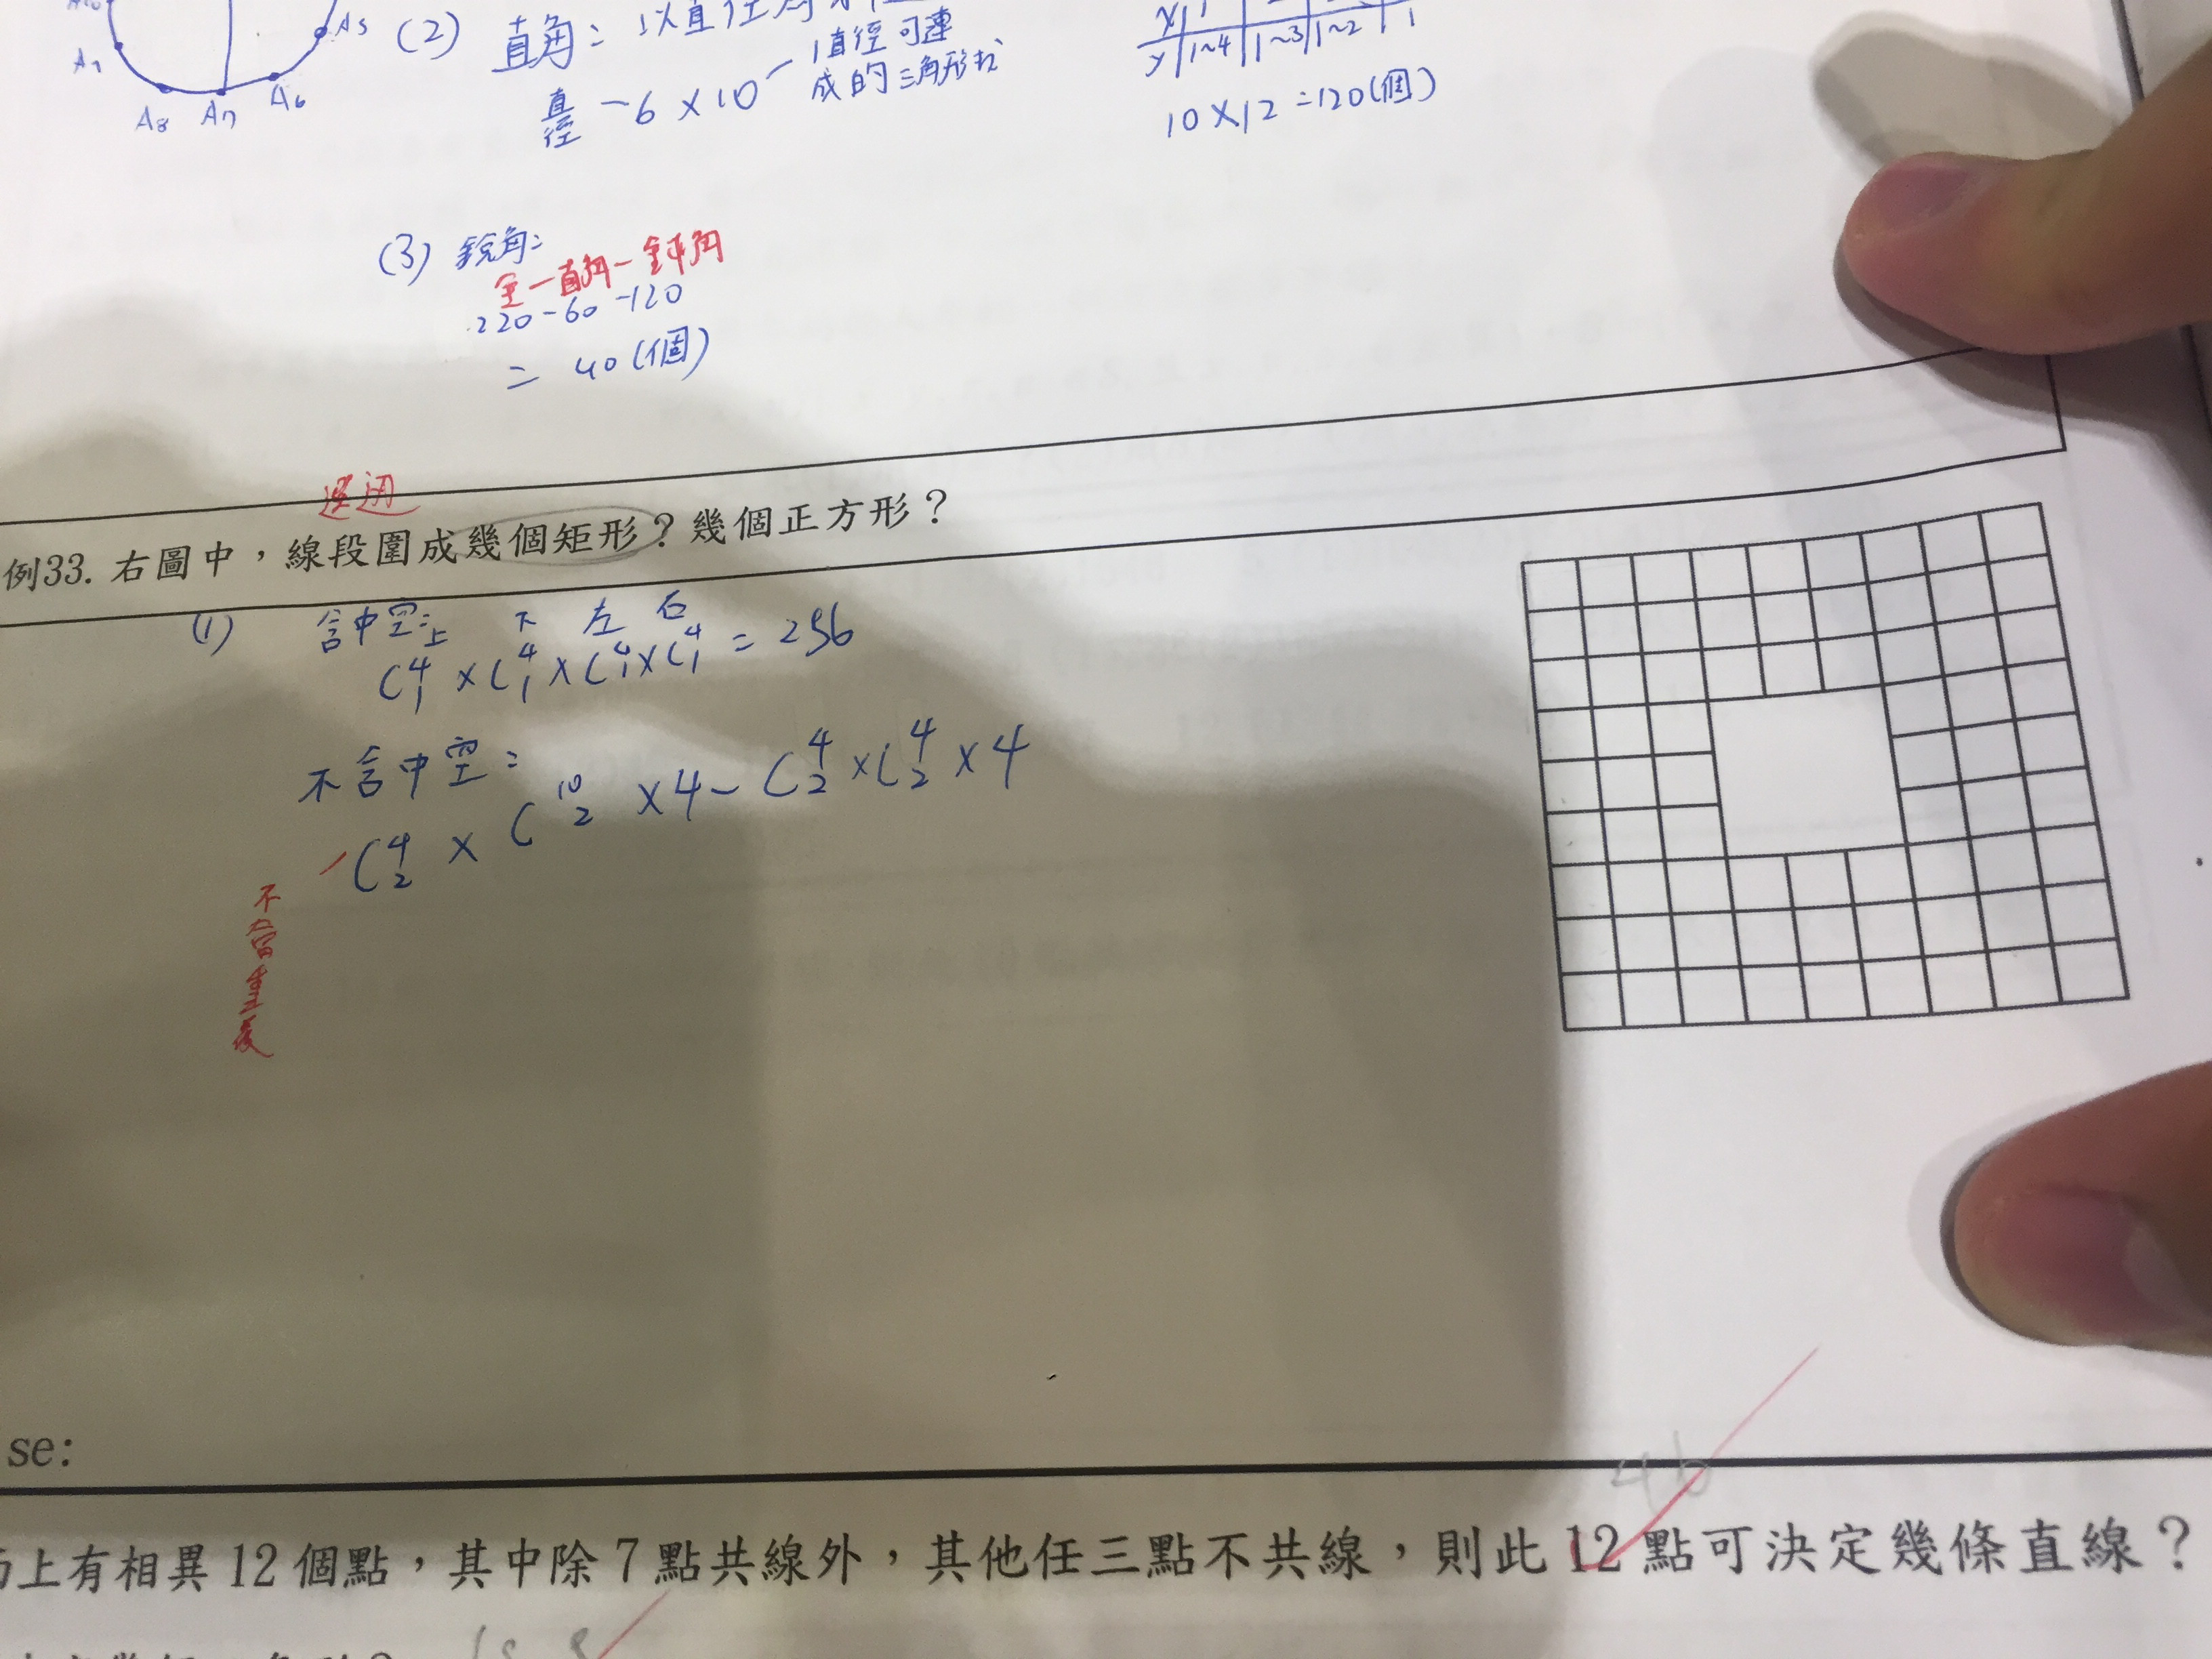 A5
A8 A7 A6
(2) 直角：以直徑
直徑 - 6 × 10 - 1直徑可連
成的三角形數
y 1~4 1~3 1~2 1
10 × 12 = 120(個)
(3) 銳角：
全-直角-鈍角
220-60-120
= 40(個)
例33. 右圖中，線段圍成幾個矩形？幾個正方形？
(1) 含中空：上 下 左 右
C⁴₁ × C⁴₁ × C⁴₁ × C⁴₁ = 256
不含中空：
C⁴₂ × C¹⁰₂ × 4 - C⁴₂ × C⁴₂ × 4
不
重
複
se:
46
上有相異 12 個點，其中除 7 點共線外，其他任三點不共線，則此 12 點可決定幾條直線？